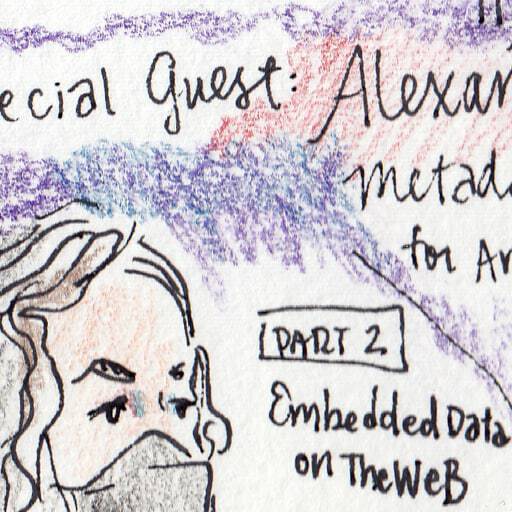 ecial Guest: Alexan
Metada
for Ar
PART 2
Embedded Data
on TheWeB